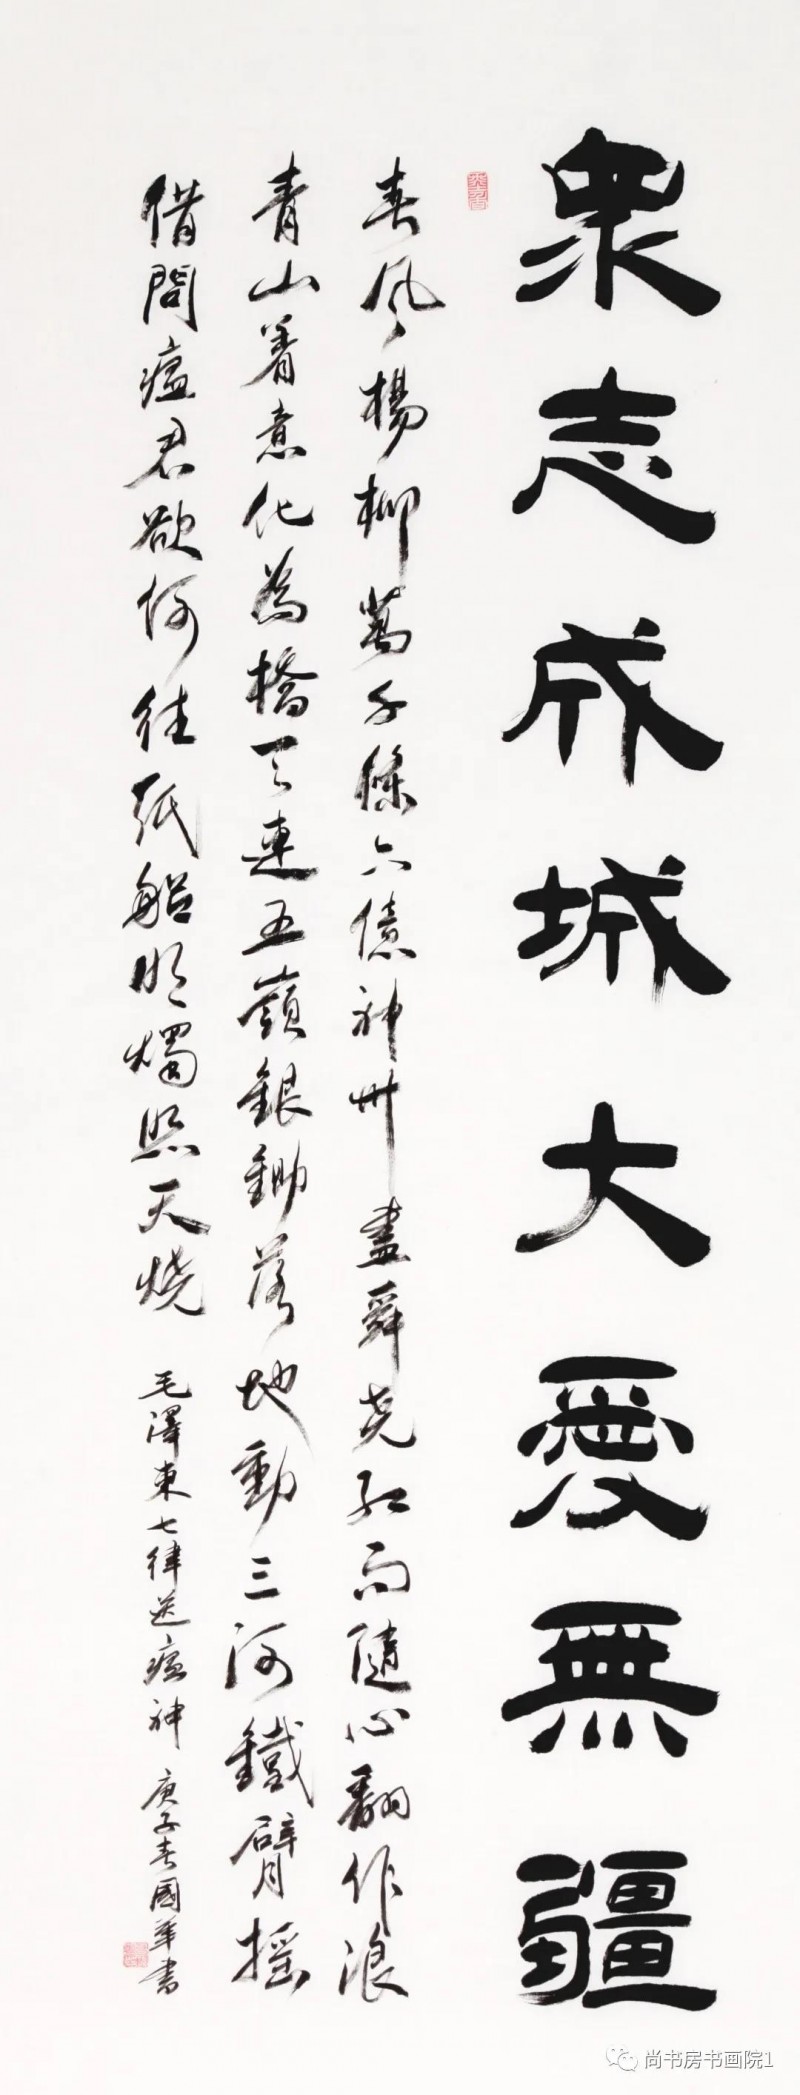 眾志成城大愛無疆
春風楊柳萬千條六億神州盡舜堯紅雨隨心翻作浪
青山着意化為橋天連五嶺銀鋤落地動三河鐵臂搖
借問瘟君欲何往紙船明燭照天燒 毛澤東七律送瘟神 庚子春國華書
尚书房书画院1